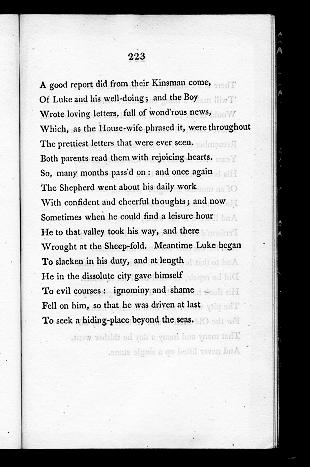 223
A good report did from their Kinsman come,
Of Luke and his well-doing; and the Boy
Wrote loving letters, full of wond'rous news,
Which, as the House-wife phrased it, were throughout
The prettiest letters that were ever seen.
Both parents read them with rejoicing hearts.
So, many months pass'd on: and once again
The Shepherd went about his daily work
With confident and cheerful thoughts; and now
Sometimes when he could find a leisure hour
He to that valley took his way, and there
Wrought at the Sheep-fold. Meantime Luke began
To slacken in his duty, and at length
He in the dissolute city gave himself
To evil courses: ignominy and shame
Fell on him, so that he was driven at last
To seek a hiding-place beyond the seas.